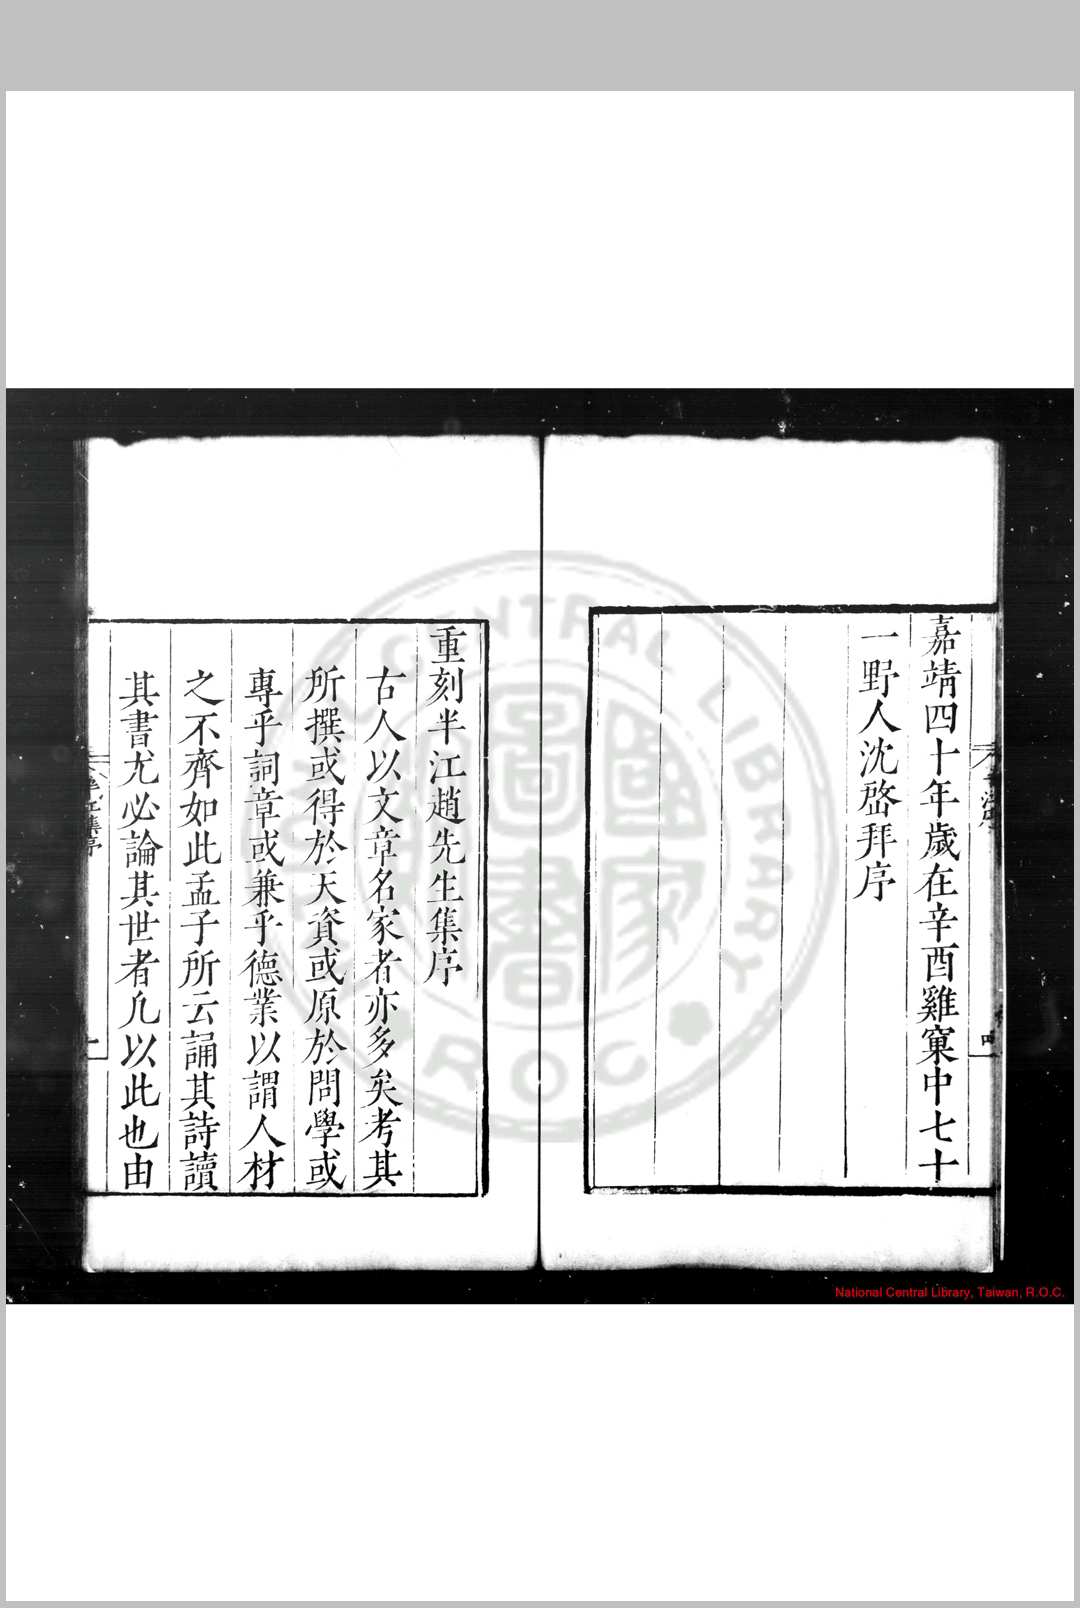 嘉靖四十年歲在辛酉雞窠中七十
一野人沈啓拜序
重刻半江趙先生集序
古人以文章名家者亦多矣考其
所撰或得於天資或原於問學或
專乎詞章或兼乎德業以謂人材
之不齊如此孟子所云誦其詩讀
其書尤必論其世者凡以此也由
CENTRAL LIBRARY
R.O.C.
國家圖書
National Central Library, Taiwan, R.O.C.